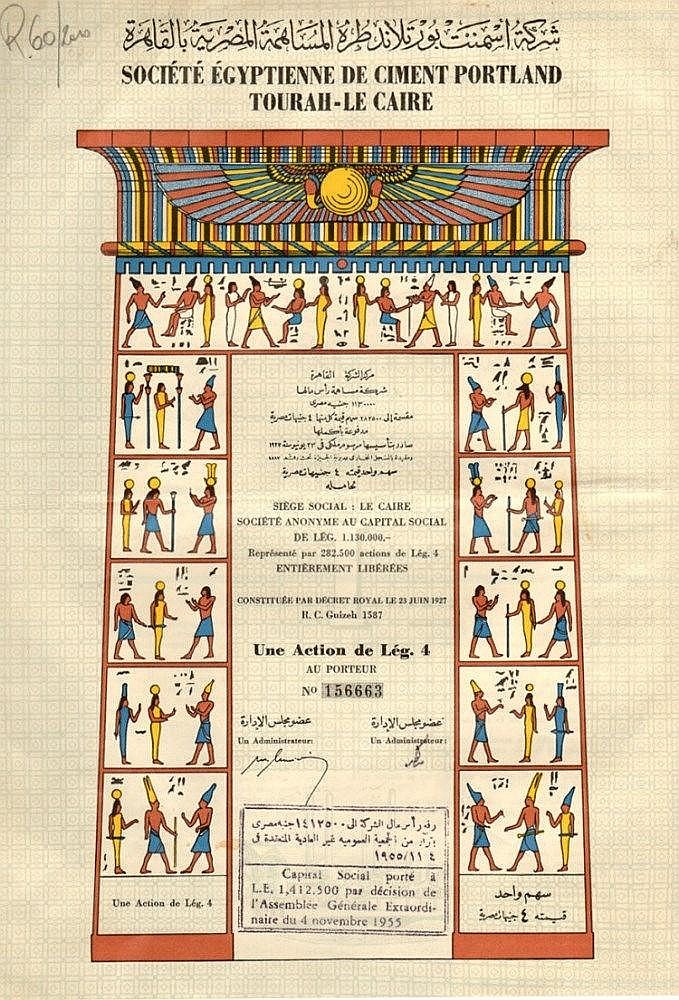 R.60/
شركة اسمنت بورتلاند طره المساهمة المصرية بالقاهرة
SOCIÉTÉ ÉGYPTIENNE DE CIMENT PORTLAND
TOURAH-LE CAIRE
مركز الشركة القاهرة
شركة مساهمة رأس مالها
١١٣٠٠٠٠ جنيه مصرى
مقسمة إلى ٢٨٢٥٠٠ سهم قيمة كل منها ٤ جنيهات مصرية
مدفوعة بأكملها
صادر بتأسيسها مرسوم ملكى فى ٢٣ يونيو سنة ١٩٢٧
سهم واحد قيمته ٤ جنيهات مصرية
لحامله
SIÈGE SOCIAL : LE CAIRE
SOCIÉTÉ ANONYME AU CAPITAL SOCIAL
DE LÉG. 1.130.000,–
Représenté par 282.500 actions de Lég. 4
ENTIÈREMENT LIBÉRÉES
CONSTITUÉE PAR DÉCRET ROYAL LE 23 JUIN 1927
R. C. Guizeh 1587
Une Action de Lég. 4
AU PORTEUR
No 156663
عضو مجلس الإدارة
عضو مجلس الإدارة
Un Administrateur:
Un Administrateur:
رفع رأس مال الشركة الى ١٤١٢٥٠٠ جنيه مصرى
بقرار من الجمعية العمومية غير العادية المنعقدة فى
٤ / ١١ / ١٩٥٥
Capital Social porté à
L.E. 1,412.500 par décision de
l'Assemblée Générale Extaordi-
naire du 4 novembre 1955
Une Action de Lég. 4
سهم واحد
قيمته ٤ جنيهات مصرية